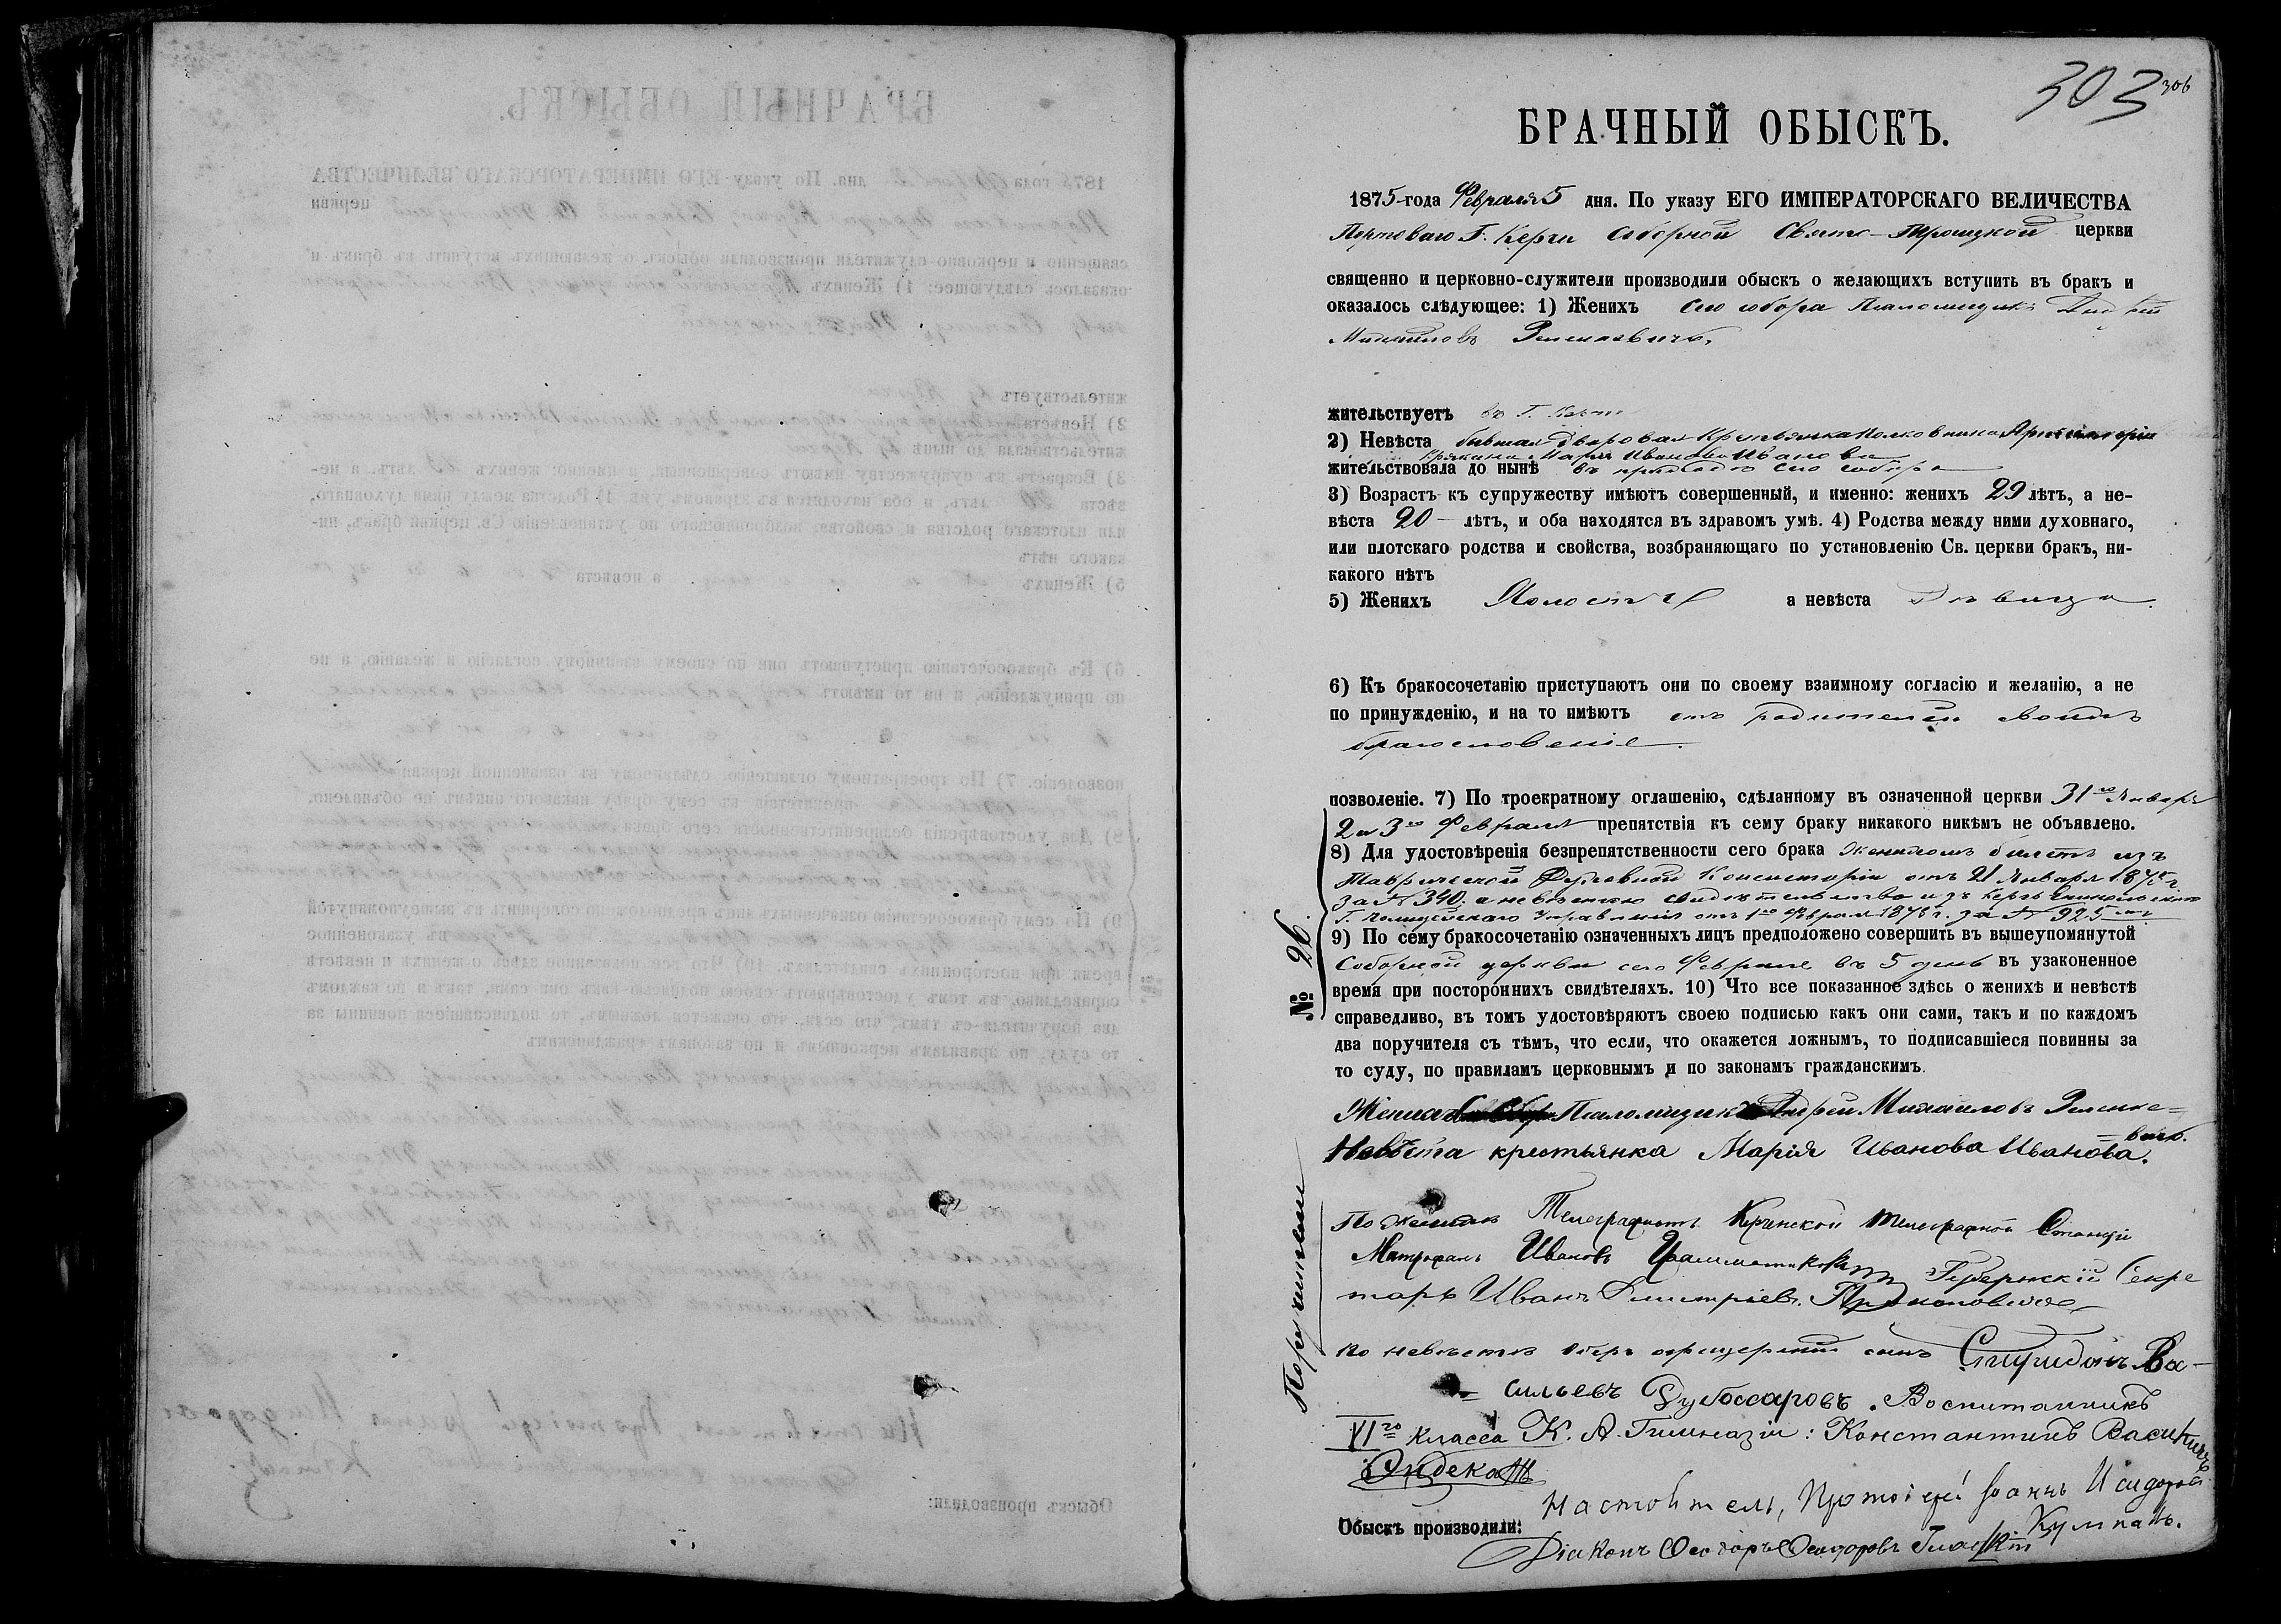 303
306
БРАЧНЫЙ ОБЫСКЪ.
1875 года Февраля 5 дня. По указу ЕГО ИМПЕРАТОРСКАГО ВЕЛИЧЕСТВА
Портоваго Г. Керчи Соборной Свято-Троицкой церкви
священно и церковно-служители производили обыскъ о желающихъ вступить въ бракъ и
оказалось слѣдующее: 1) Женихъ сего собора Псаломщикъ Андрей
Михаиловъ Зеленкевичъ.
жительствуетъ въ Г. Керчи
2) Невѣста бывшая дворовая крестьянка полковника
Марія Иванова Иванова
жительствовала до нынѣ въ приходѣ сего собора
3) Возрастъ къ супружеству имѣютъ совершенный, и именно: женихъ 29 лѣтъ, а не-
вѣста 20 лѣтъ, и оба находятся въ здравомъ умѣ. 4) Родства между ними духовнаго,
или плотскаго родства и свойства, возбраняющаго по установленію Св. церкви бракъ, ни-
какого нѣтъ
5) Женихъ Холостъ а невѣста Дѣвица.
6) Къ бракосочетанію приступаютъ они по своему взаимному согласію и желанію, а не
по принужденію, и на то имѣютъ отъ родителей своихъ
благословеніе.
позволеніе. 7) По троекратному оглашенію, сдѣланному въ означенной церкви 31го Января
2 и 3го Февраля препятствія къ сему браку никакого никѣмъ не объявлено.
8) Для удостовѣренія безпрепятственности сего брака женихомъ билетъ изъ
Таврической Духовной Консисторіи отъ 21 Января 1875 г.
за № 340. а невѣстою свидѣтельство изъ Керчь Еникольскаго
Г. Полицейскаго Управленія отъ 1го Февраля 1875 г. за № 925
№ 26.
9) По сему бракосочетанію означенныхъ лицъ предположено совершить въ вышеупомянутой
Соборной церкви сего Февраля въ 5 день въ узаконенное
время при постороннихъ свидѣтеляхъ. 10) Что все показанное здѣсь о женихѣ и невѣстѣ
справедливо, въ томъ удостовѣряютъ своею подписью какъ они сами, такъ и по каждомъ
два поручителя съ тѣмъ, что если, что окажется ложнымъ, то подписавшіеся повинны за
то суду, по правиламъ церковнымъ и по законамъ гражданскимъ.
Женихъ Псаломщикъ Андрей Михаиловъ Зеленке=
=вичъ.
Невѣста крестьянка Марія Иванова Иванова.
Поручители
По женихѣ Телеграфистъ Керченской телеграфной Станціи
Митрофанъ Ивановъ Губернскій Секре
тарь Иванъ Дмитріевъ Прокоповичъ
по невѣстѣ Оберъ офицерскій сынъ Спиридонъ Ва-
=сильевъ Дубоссаровъ. Воспитанникъ
VIго класса К. А. Гимназіи: Константинъ
Настоятель, Протоіерей Іоаннъ Исидоровъ
Кумпанъ.
Обыскъ производили:
Діаконъ Ѳеодоръ